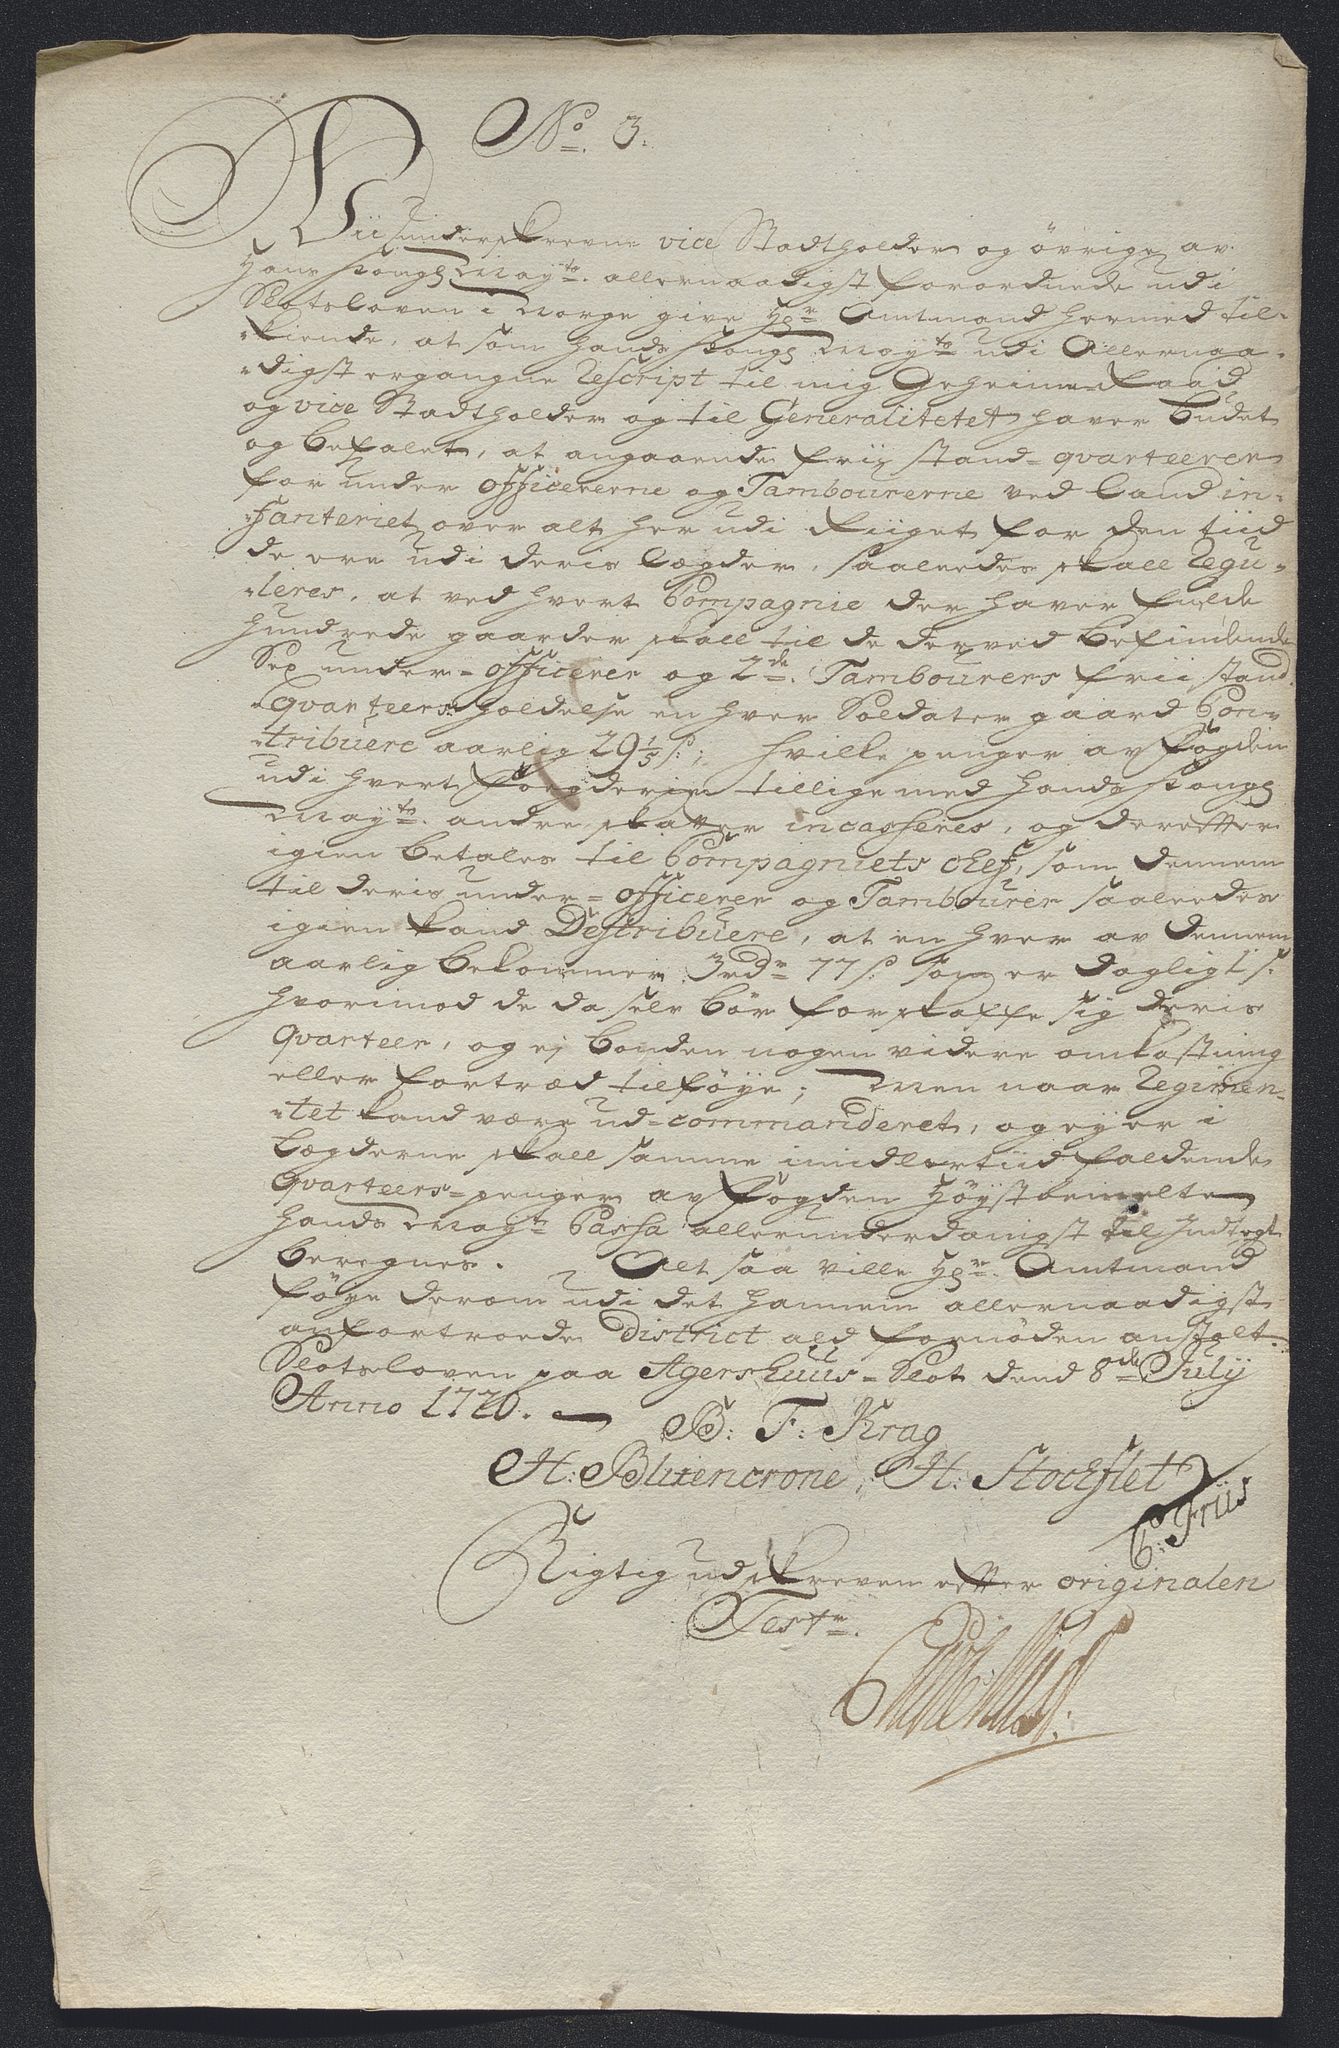 No. 3.
Vii underskrevne vice Stadtholder og övrige av
Hans Kongl Mayts. allernaadigst forordnede udi
Slotsloven i Norge give Hr Amtmand hermed til-
kiende, at som hands Kongl Mayts udi Allernaa-
digst ergangne Rescript til mig Geheime Raad
og vice Stadtholder og til Generalitetet haver budet
og befalet, at angaaende frii stand-qvarteerer
for under officererne og Tambourerne ved land in-
fanteriet over alt her udi Riiget for den tiid
de ere udi deris lægder, saaledes skall Regu-
leres, at ved hvert Compagnie der haver fulde
hundrede gaarder skall til de derved befindende
Sex under-officerer og 2de. Tambourers frii stand
qvarteers holdelse en hver Soldater gaard Con-
tribuere aarlig 29 1/5 s; hvilke penger av fogden
udi hvert fögderie tillige med hands Kongl
Mayts. andre skatter incasseres, og derefter
igien betales til Compagniets chef, som dennem
til deris under-officerer og Tambourer saaledes
igien kand Destribuere, at en hver av dennem
aarlig bekommer 3rdr 77 s som er dagligt 1 s.
hvorimod de da selv bör forskaffe sig deris
qvarteer, og ej bonden nogen videre omkostning
eller fortræd tilföye; Men naar Regimen-
tet kand være ud-commanderet, og ey er i
Lægderne skall samme imidlertiid faldende
qvarteers-penger av fogden Höystbemelte
hands Mayts Cassa allerunderdanigst til Indtegt
beregnes. Alt saa ville Hr. Amtmand
föye derom udi det hannem allernaadigst
anfortroede District ald fornöden anstalt.
Slotsloven paa Agershuus-Slot dend 8de July
Anno 1720.
B: F: Krag
H: Blixencrone, H: Stockflet
C: Friis
Rigtig udskreven efter originalen
Tester.